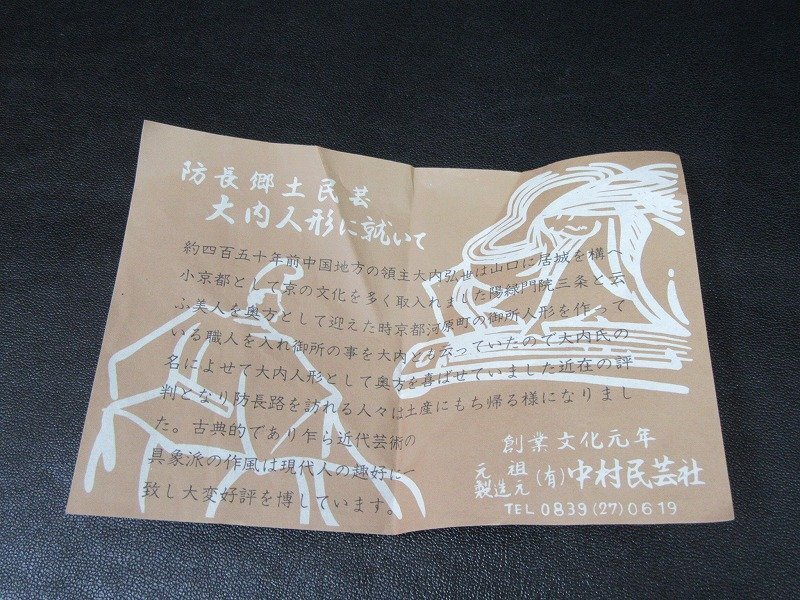 防長郷土民芸
大内人形に就いて
約四百五十年前中国地方の領主大内弘世は山口に居城を構へ
小京都として京の文化を多く取入れました陽緑門院三条と云
ふ美人を奥方として迎えた時京都河原町の御所人形を作って
いる職人を入れ御所の事を大内とも云っていたので大内氏の
名によせて大内人形として奥方を喜ばせていました近在の評
判となり防長路を訪れる人々は土産にもち帰る様になりまし
た。古典的であり乍ら近代芸術の
具象派の作風は現代人の趣好に一
致し大変好評を博しています。
創業文化元年
元祖
製造元
(有)中村民芸社
TEL 0839(27)0619